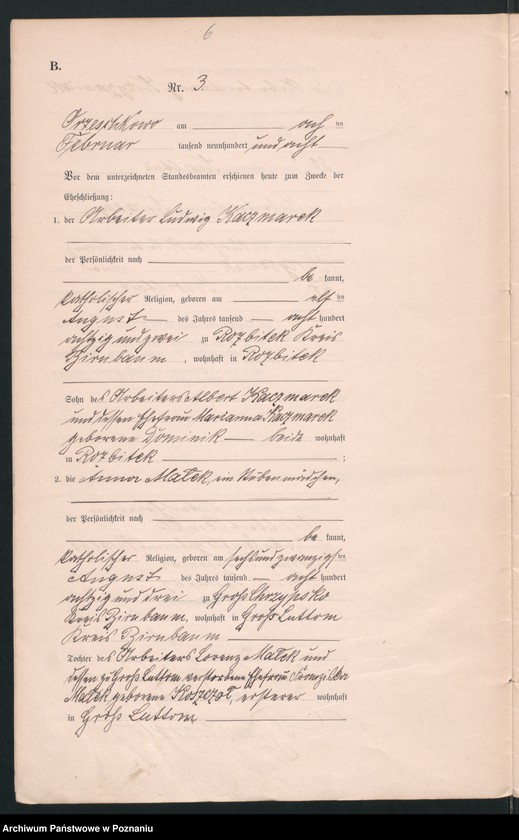 6
B.
Nr. 3.
Orzeschkowo am acht ten
Februar tausend neunhundert und acht
Vor dem unterzeichneten Standesbeamten erschienen heute zum Zwecke der
Eheschließung:
1. der Arbeiter Ludwig Kaczmarek
der Persönlichkeit nach
be kannt,
katholischer Religion, geboren am elf ten
August des Jahres tausend acht hundert
achtzig und zwei zu Rozbitek Kreis
Birnbaum, wohnhaft in Rozbitek
Sohn des Arbeiters Albert Kaczmarek
und dessen Ehefrau Marianna Kaczmarek
geborene Dominik beide wohnhaft
in Rozbitek ;
2. die Anna Małek, ein Stubenmädchen,
der Persönlichkeit nach
be kannt,
katholischer Religion, geboren am sechsundzwanzigsten
August des Jahres tausend acht hundert
achtzig und drei zu Groß Chrzypsko
Kreis Birnbaum, wohnhaft in Groß Luttom
Kreis Birnbaum
Tochter des Arbeiters Lorenz Małek und
dessen zu Groß Luttom verstorbene Ehefrau
Małek geborene ersterer wohnhaft
in Groß Luttom
Archiwum Państwowe w Poznaniu